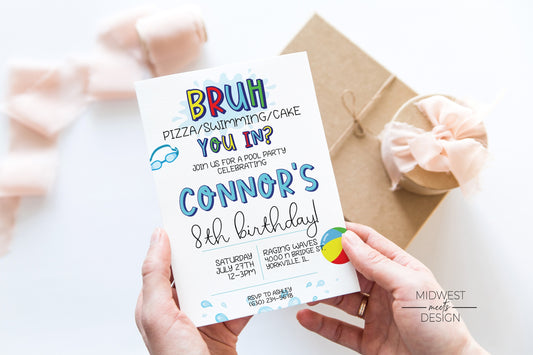 BRUH
PIZZA/SWIMMING/CAKE
YOU IN?
JOIN US FOR A POOL PARTY
CELEBRATING
CONNOR'S
8th birthday!
SATURDAY
JULY 27TH
12-3PM
RAGING WAVES
4000 N BRIDGE ST
YORKVILLE, IL
RSVP TO ASHLEY
(630) 234-9678
MIDWEST
meets
DESIGN